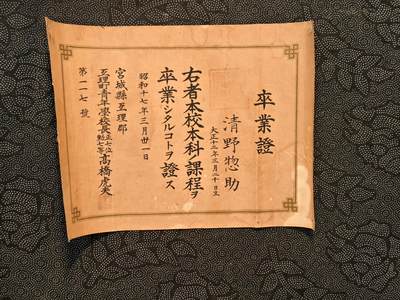 卒業證
清野惣助
大正十三年三月二十日生
右者本校本科ノ課程ヲ
卒業シタルコトヲ證ス
昭和十七年三月廿一日
宮城縣亘理郡
亘理町青年學校長正七位勲七等髙橋虎夫
第一一七號